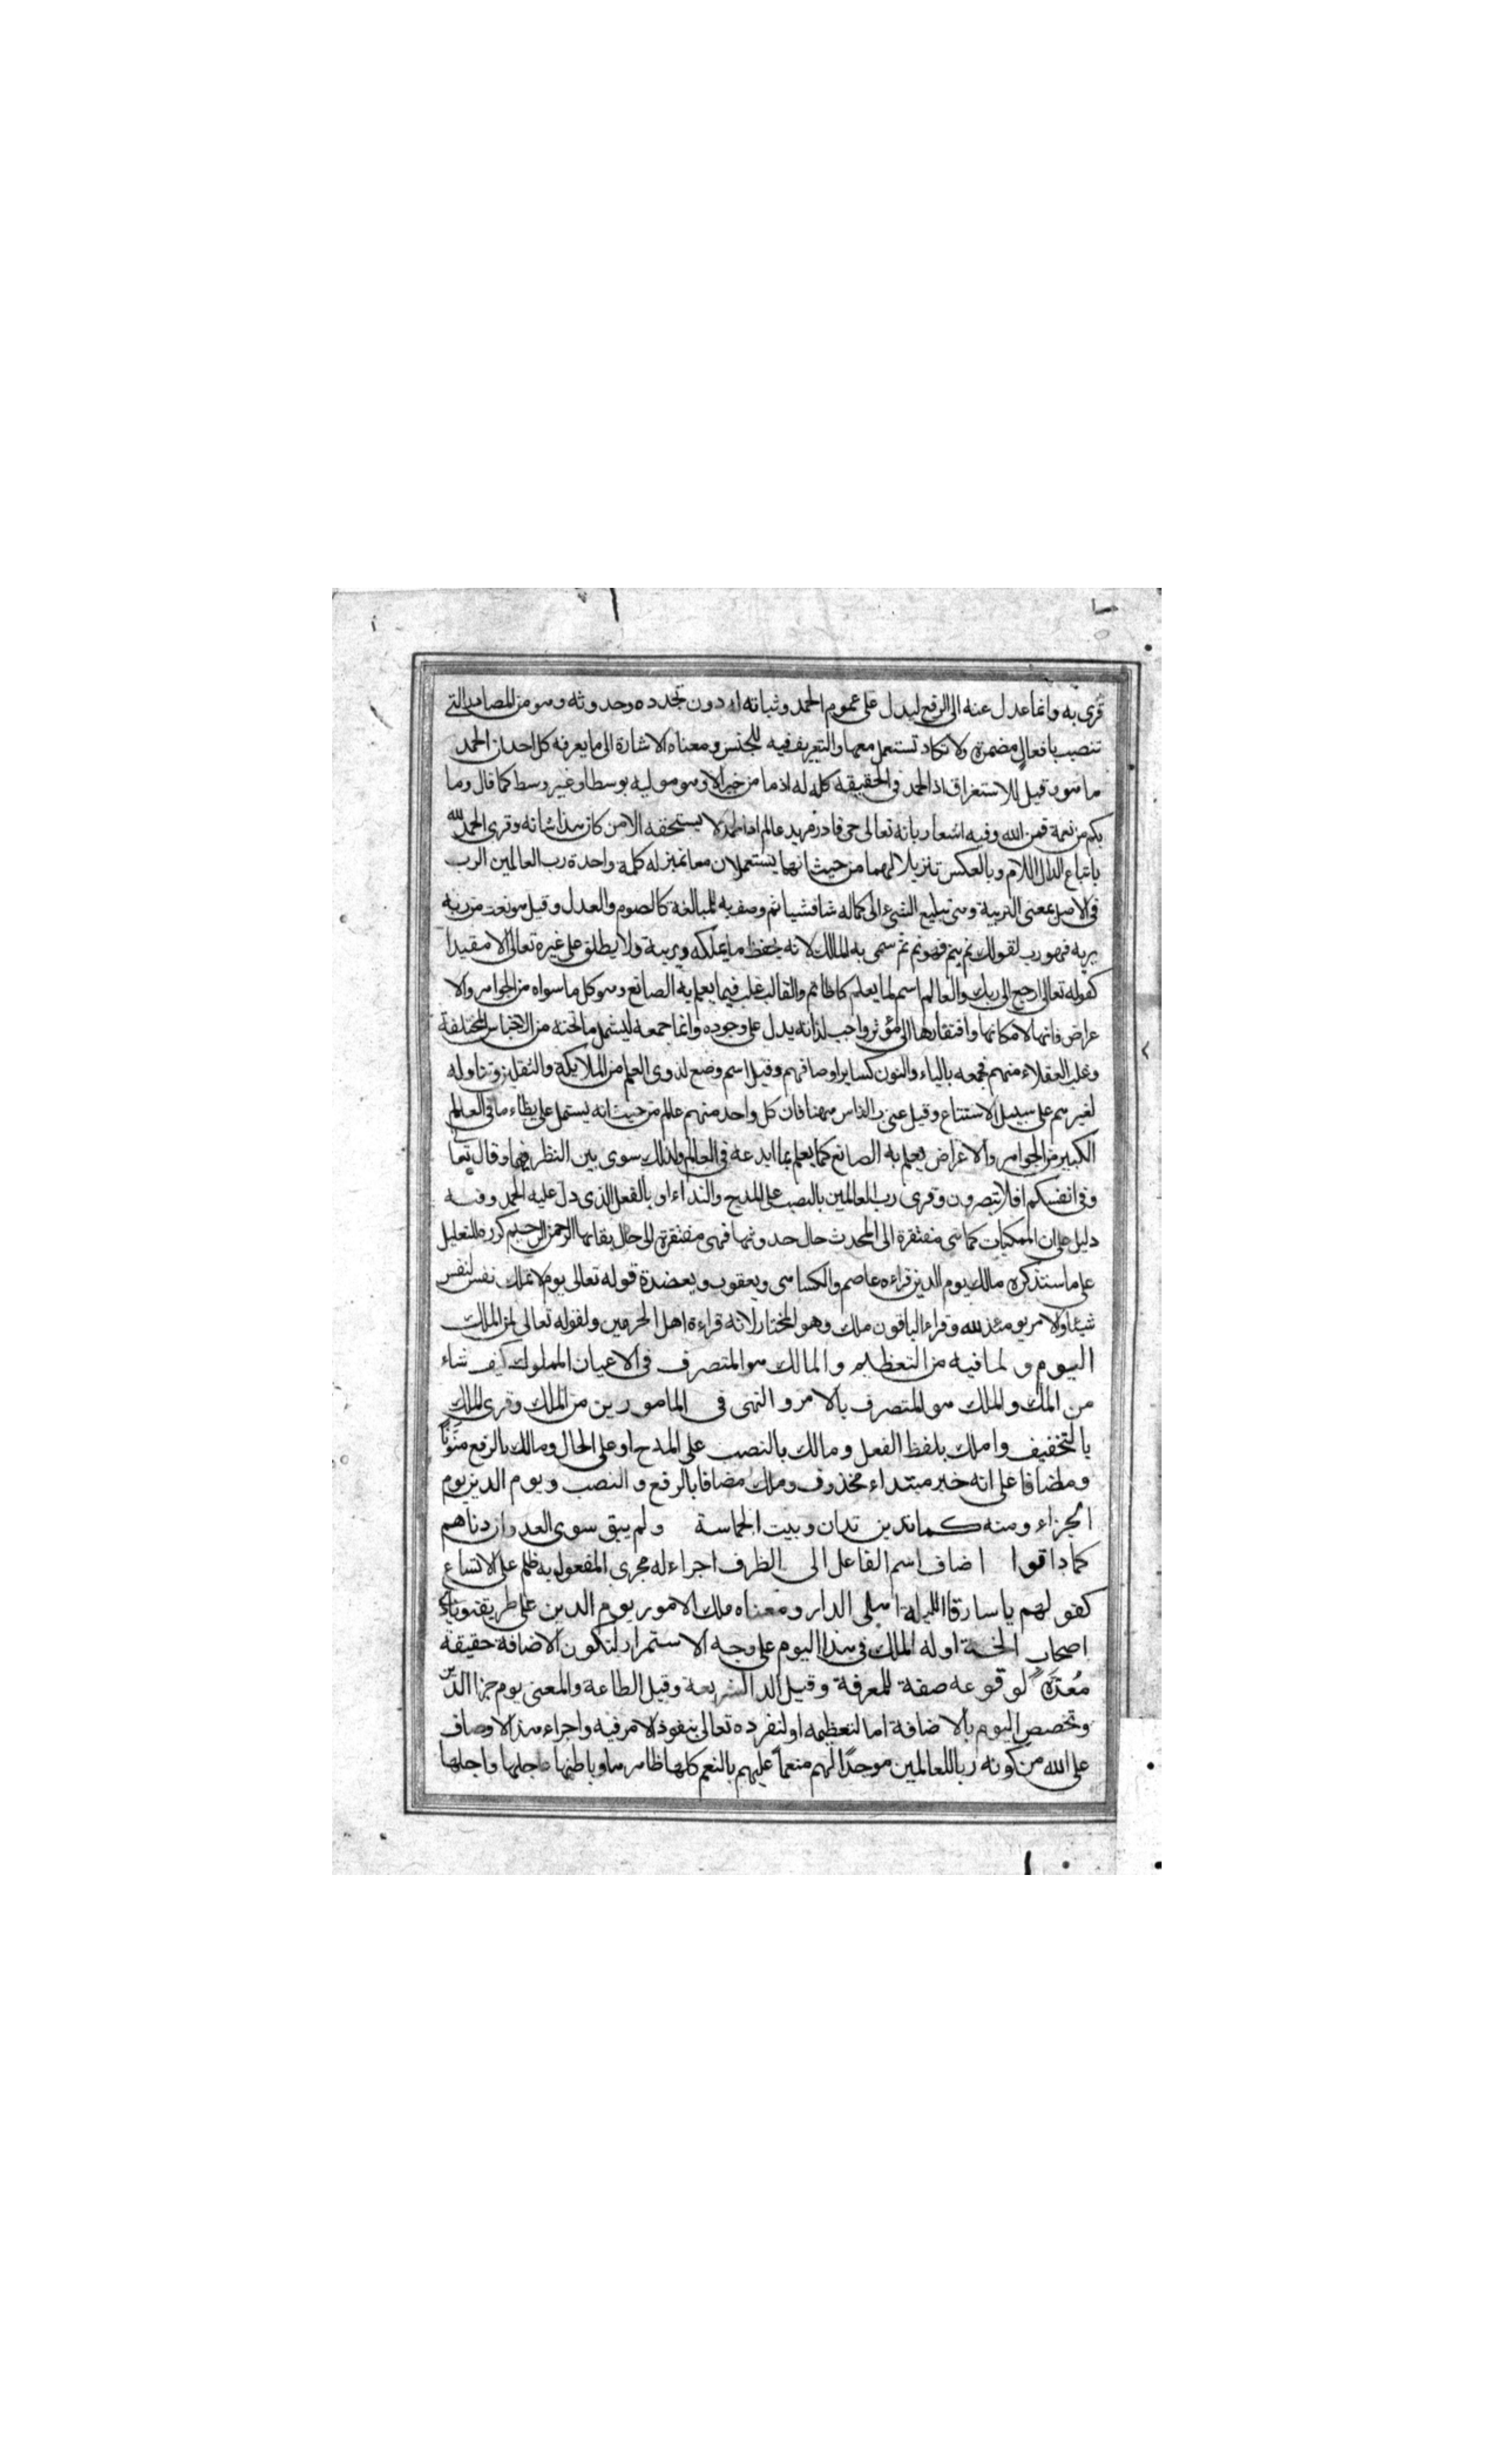 قرى به وانما عدل عنه الى الرفع ليدل على عموم الحمد وثباته له دون تجدده وحدوثه وهو من المصادر التى
تنصب بافعال مضمرة ولا تكاد تستعمل معها والتعريف فيه للجنس ومعناه الاشارة الى ما يعرفه كل احد ان الحمد
ما هو وقيل للاستغراق اذ الحمد فى الحقيقة كله له اذ ما من خير الا وهو موليه بوسط او غير وسط كما قال وما
بكم من نعمة فمن الله وفيه اشعار بانه تعالى حى قادر مريد عالم اذ الحمد لا يستحقه الا من كان هذا شانه وقرى الحمد لله
باتباع الدال اللام وبالعكس تنزيلا لهما من حيث انهما يستعملان معا بمنزلة كلمة واحدة رب العالمين الرب
فى الاصل بمعنى التربية وهى تبليغ الشىء الى كماله شا فشيا ثم وصف به للمبالغة كالصوم والعدل وقيل هو نعت من ربه
يربه فهو رب لقولك نم ينم فهو نم ثم سمى به المالك لانه يحفظ ما يملكه ويربية ولا يطلق على غيره تعالى الا مقيدا
كقوله تعالى ارجع الى ربك والعالم اسم لما يعلم كالخاتم والقالب غلب فيما يعلم به الصانع وهو كل ما سواه من الجواهر والا
عراض فانها لامكانها وافتقارها الى مؤثر واجب لذاته يدل على وجوده وانما جمعه ليشمل ما تحته من الاجناس المختلفة
وغلب العقلاء منهم فجمعه بالياء والنون كساير اوصافهم وقيل اسم وضع لذوى العلم من الملايكة والثقلين وتناوله
لغيرهم على سبيل الاستتباع وقيل عنى به الناس ههنا فان كل واحد منهم عالم من حيث انه يشتمل على نظاء ما فى العالم
الكبير من الجواهر والاعراض يعلم به الصانع كما يعلم بما ابدعه فى العالم ولذلك سوى بين النظر فيهما وقال تعالى
وفى انفسكم افلا تبصرون وقرى رب العالمين بالنصب على المدح والنداء او بالفعل الذى دل عليه الحمد وفيه
دليل على ان الممكنات كما هى مفتقرة الى المحدث حال حدوثها فهى مفتقرة الى حال بقائها الرحمن الرحيم كرره للتعليل
على ما سنذكره مالك يوم الدين قراءه عاصم والكسائى ويعقوب ويعضدة قوله تعالى يوم لا تملك نفس لنفس
شيئا والامر يومئذ لله وقراء الباقون ملك وهو المختار لانه قراءة اهل الحرمين ولقوله تعالى لمن الملك
اليوم ولما فيه من التعظيم والمالك هو المتصرف فى الاعيان المملوك كيف شاء
من الملك والملك هو المتصرف بالامر والنهى فى المامورين من الملك وقرى الملك
بالتخفيف واملك بلفظ الفعل ومالك بالنصب على المدح او على الحال ومالك بالرفع منونا
ومضافا على انه خبر مبتداء محذوف وملك مضافا بالرفع والنصب ويوم الدين يوم
الجزاء ومنه كما تدين تدان وبيت الحماسة ولم يبق سوى العدوان دناهم
كما داقوا اضاف اسم الفاعل الى الظرف اجراء له مجرى المفعول به على الاتساع
كقولهم يا سارقا الليلة اهل الدار ومعناه ملك الامور يوم الدين على طريقة
اصحاب الجنة او له الملك فى هذا اليوم على وجه الاستمرار لتكون الاضافة حقيقة
معدة لوقوعه صفة للمعرفة وقيل الد الشريعة وقيل الطاعة والمعنى يوم جزا الدين
وتخصيص اليوم بالاضافة اما لتعظيمه او لتفرده تعالى بنفوذ الامر فيه واجراء هذه الاوصاف
على الله من كونه ربا للعالمين موجدا لهم منعما عليهم بالنعم كلها ظاهرها وباطنها عاجلها واجلها